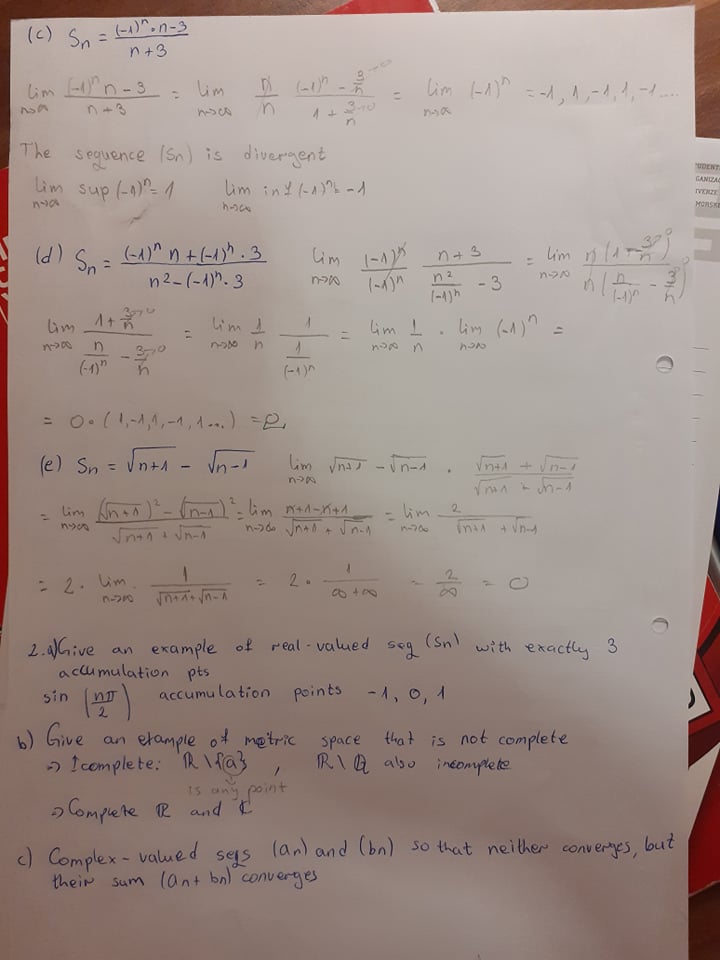 (c) Sn = (-1)^n · n-3 / n+3
lim n→∞ (-1)^n n - 3 / n+3 = lim n→∞ n/n (-1)^n - 3/n →0 / 1 + 3/n →0 = lim n→∞ (-1)^n = -1, 1, -1, 1, -1....
The sequence (Sn) is divergent
lim n→∞ sup (-1)^n = 1 lim n→∞ inf (-1)^n = -1
(d) Sn = (-1)^n n + (-1)^n · 3 / n² - (-1)^n · 3 lim n→∞ (-1)^n / (-1)^n n+3 / n²/(-1)^n - 3 = lim n→∞ n (1 + 3/n) →0 / n (n/(-1)^n - 3/n) →0
lim n→∞ 1 + 3/n →0 / n/(-1)^n - 3/n →0 = lim n→∞ 1/n 1 / 1/(-1)^n = lim n→∞ 1/n · lim n→∞ (-1)^n =
= 0 · (1, -1, 1, -1, 1...) = 0
(e) Sn = √n+1 - √n-1 lim n→∞ √n+1 - √n-1 · √n+1 + √n-1 / √n+1 + √n-1
= lim n→∞ (√n+1)² - (√n-1)² / √n+1 + √n-1 = lim n→∞ n+1-n+1 / √n+1 + √n-1 = lim n→∞ 2 / √n+1 + √n-1
= 2 · lim n→∞ 1 / √n+1 + √n-1 = 2 · 1 / ∞+∞ = 2/∞ = 0
2. a) Give an example of real-valued seq (Sn) with exactly 3
accumulation pts
sin (nπ/2) accumulation points -1, 0, 1
b) Give an example of metric space that is not complete
→ Icomplete: ℝ \ {a}, ℝ \ ℚ also incomplete
is any point
→ Complete ℝ and ℂ
c) Complex-valued seqs (an) and (bn) so that neither converges, but
their sum (an + bn) converges